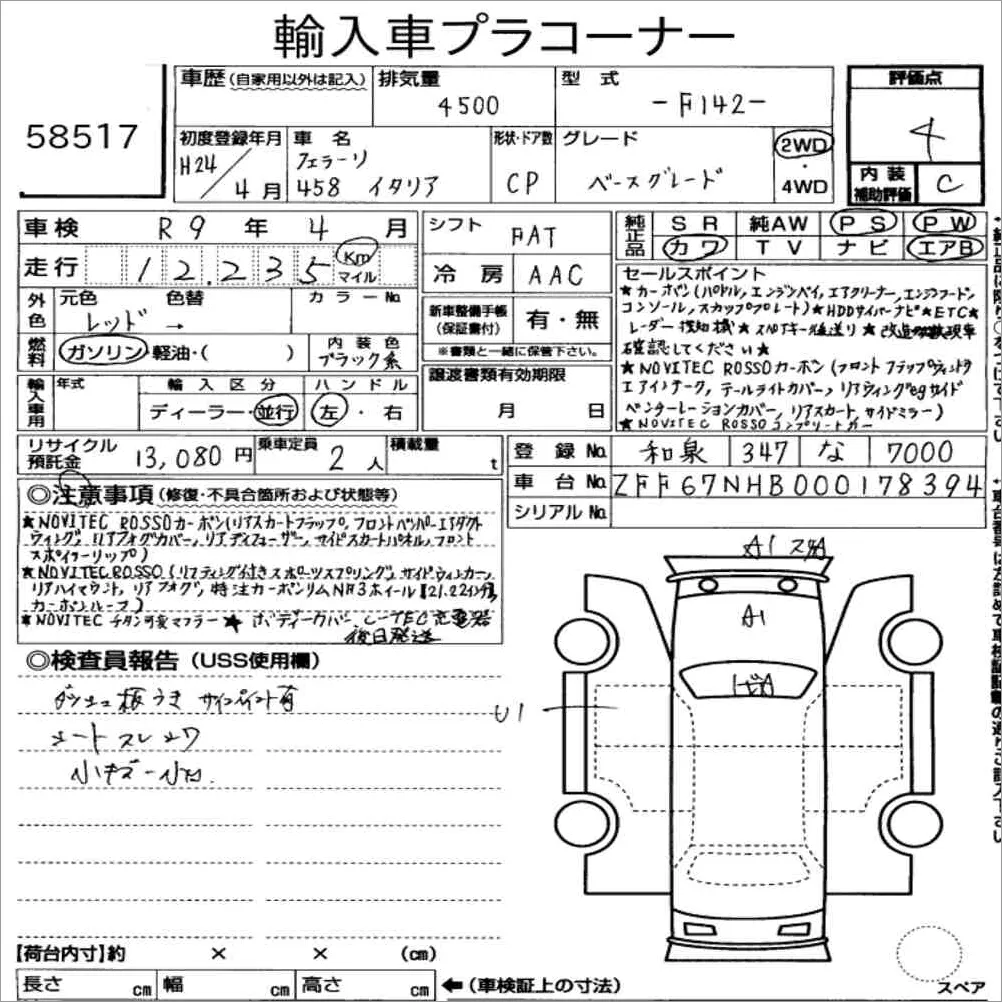 輸入車プラコーナー
58517
車歴(自家用以外は記入)
排気量
4500
型式
-F142-
評価点
4
初度登録年月
H24/4月
車名
フェラーリ
458 イタリア
形状・ドア数
CP
グレード
ベースグレード
2WD
・
4WD
内装
補助評価
C
車検 R9年4月
シフト
FAT
純正品
SR 純AW PS PW
カワ TV ナビ エアB
走行 12,235 Km マイル
冷房 AAC
セールスポイント
★カーボン(パドル,エンジンベイ,エアクリーナー,エンジンフード,
コンソール,スカッフプレート)★HDDサイバーナビ★ETC★
レーダー探知機★スペアキー後送り★改造
確認してください★
★NOVITEC ROSSOカーボン(フロントフラップウィング
エアインテーク,テールライトカバー,リアウィングegサイド
ベンチレーションカバー,リアスカート,サイドミラー)
★NOVITEC ROSSOコンプリートカー
外色
元色
レッド→
色替
カラーNo.
新車整備手帳
(保証書付)
有・無
※書類と一緒に保管下さい。
燃料
ガソリン・軽油・( )
内装色
ブラック系
輸入車用
年式
輸入区分
ディーラー・並行
ハンドル
左・右
譲渡書類有効期限
月 日
リサイクル
預託金
13,080円
乗車定員
2人
積載量
t
登録No. 和泉 347 な 7000
車台No. ZFF67NHB000178394
シリアルNo.
◎注意事項(修復・不具合箇所および状態等)
★NOVITEC ROSSOカーボン(リアスカートフラップ,フロントバンパーエアダクト
ウィング,リアフォグカバー,リアディフューザー,サイドスカートパネル,フロント
スポイラーリップ)
★NOVITEC ROSSO(リフティング付きスポーツスプリング,サイドウィンカー,
リアハイマウント,リアフォグ,特注カーボンリムNF3ホイール21.22インチ)
カーボンルーフ)
★NOVITECチタン可変マフラー★ボディークバー,しーTEC充電器
後日発送
◎検査員報告(USS使用欄)
ダッシュ板うき サインペイント有
シートスレ シワ
小キズ-小凹
A1
A1
U1
【荷台内寸】約 × × (cm)
長さ cm 幅 cm 高さ cm
←(車検証上の寸法)
スペア